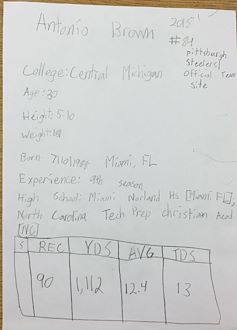 Antonio Brown 2015
#84
pittsburgh
steelers
Official Team
site
College: Central Michigan
Age: 30
Height: 5-10
Weight:
Born 7/10/1988 Miami, FL
Experience: 9th season
High School: Miami Norland Hs [Miami FL],
North Carolina Tech Prep christian Acad
[NC]
REC YDS AVG TDS
90 1,112 12.4 13